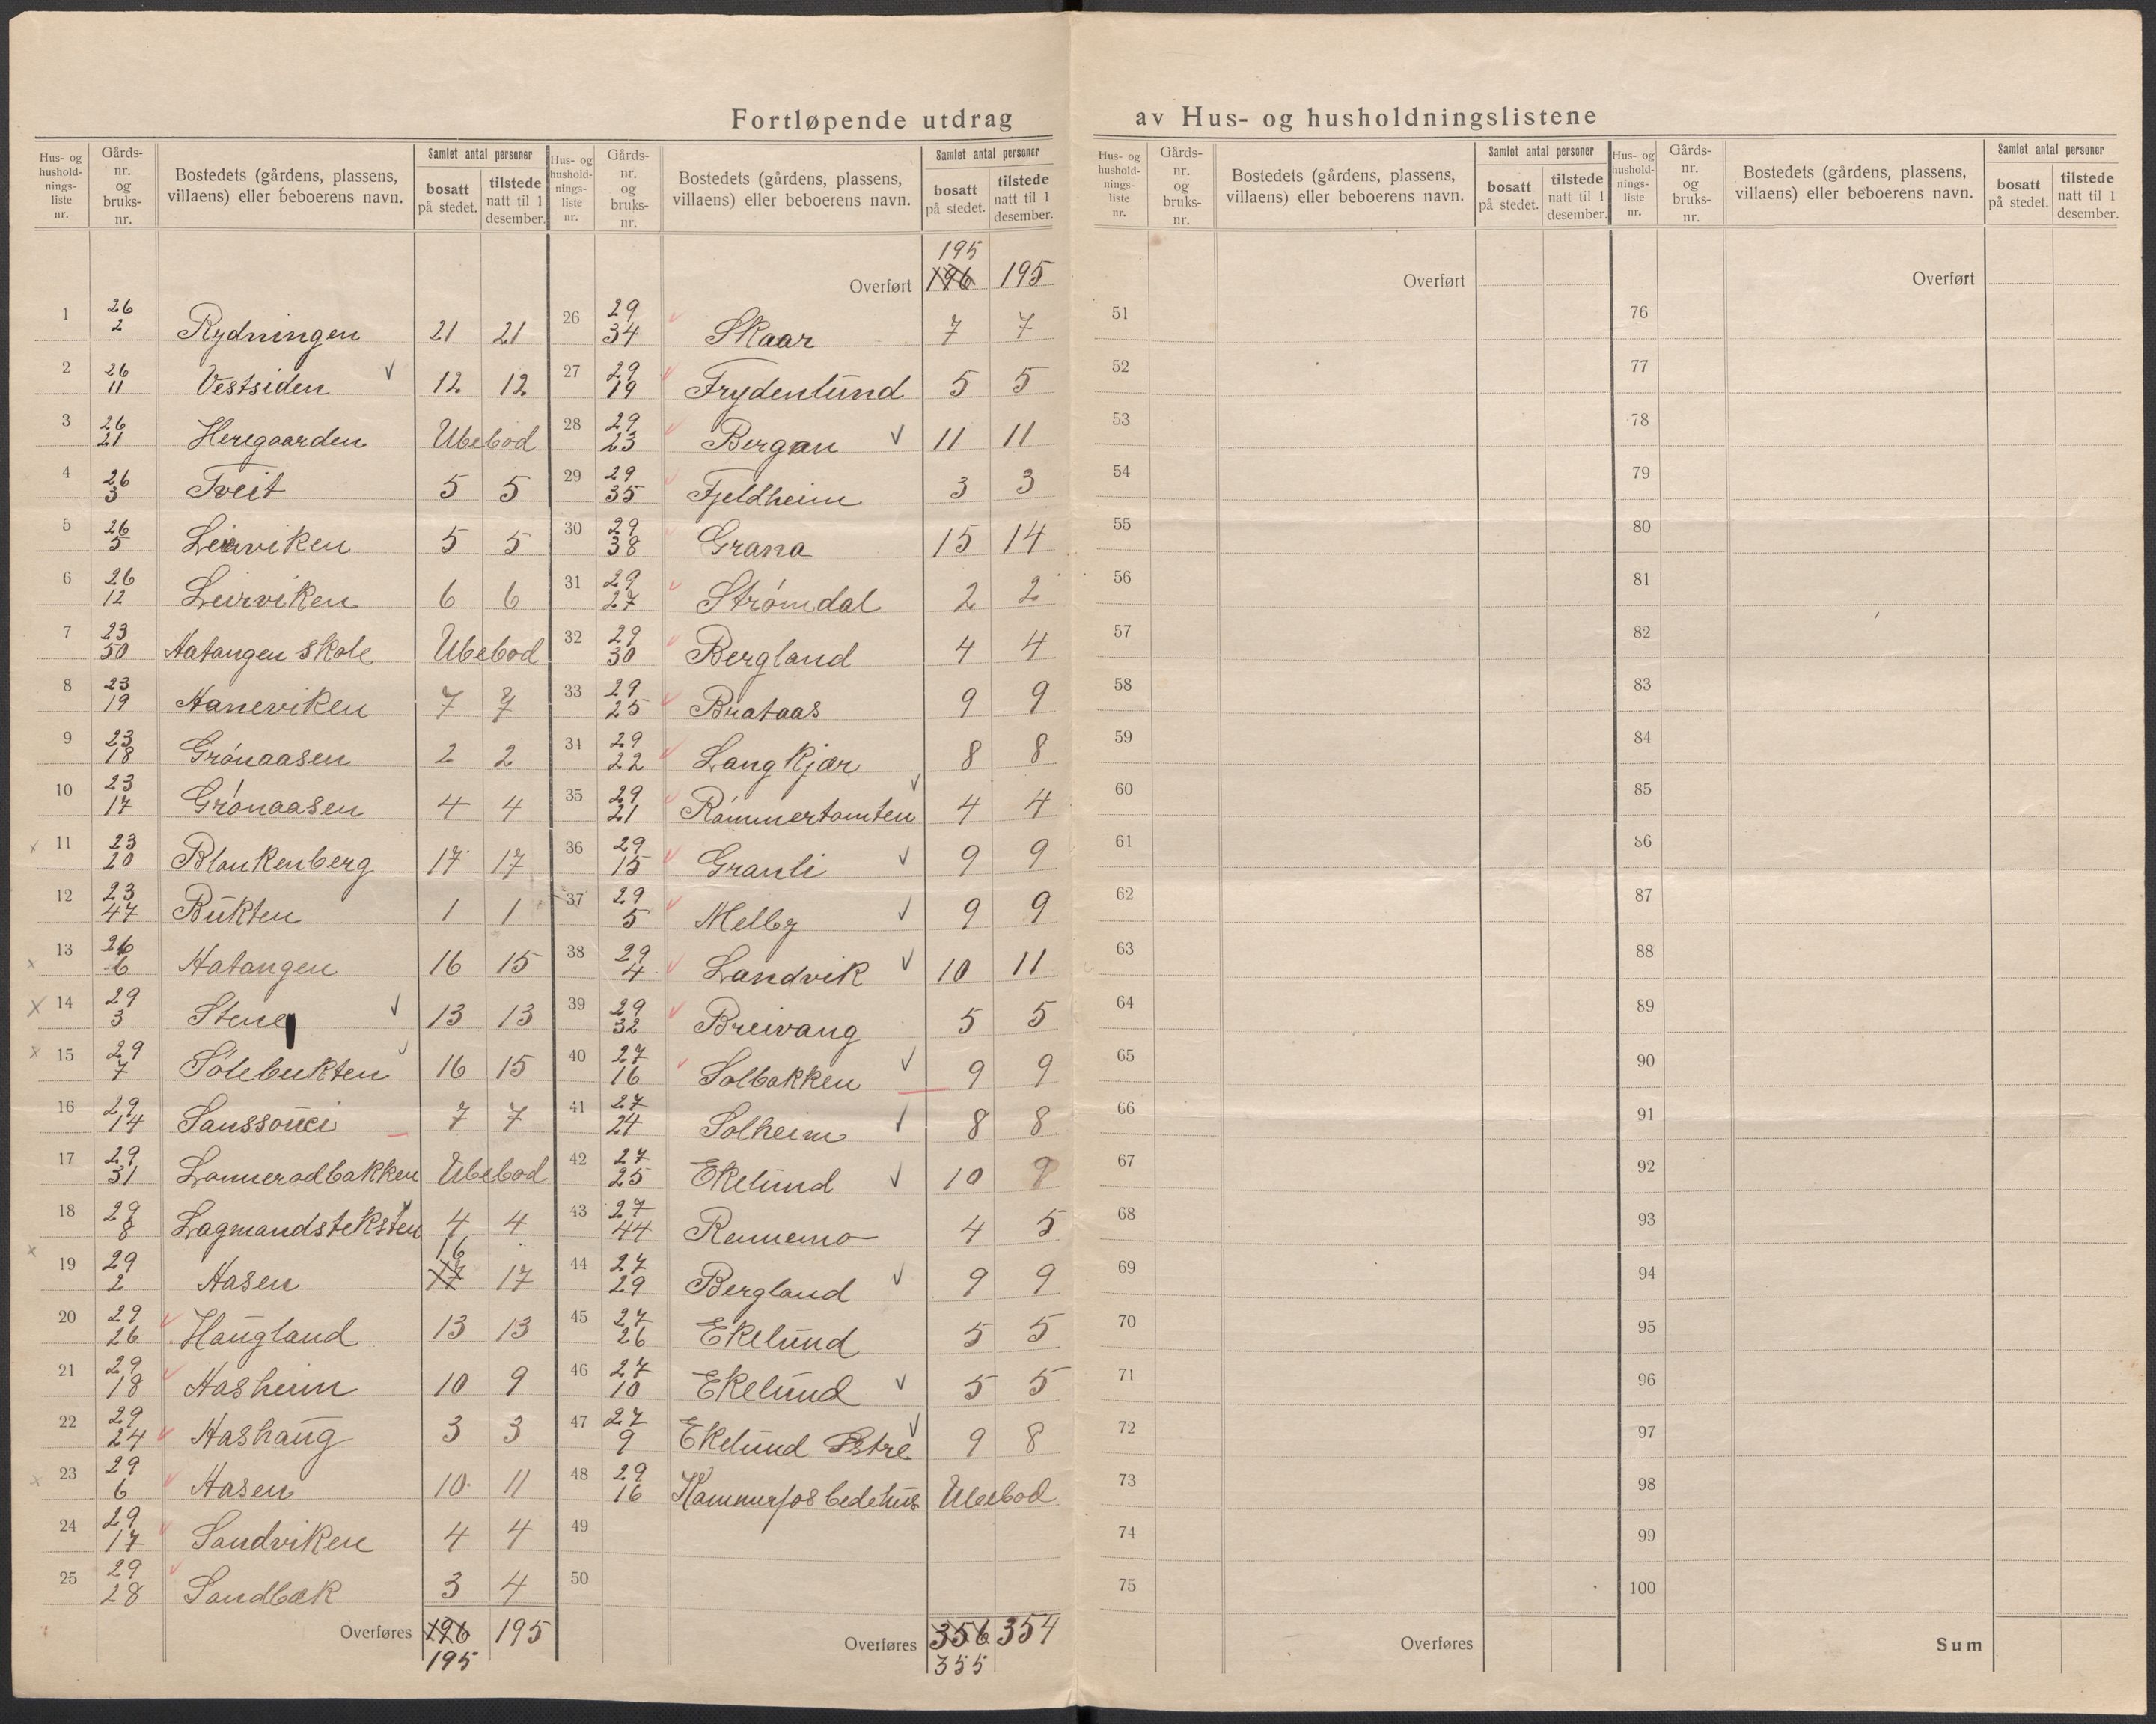 Fortløpende utdrag av Hus- og husholdningslistene
Hus- og husholdningsliste nr. | Gårdsnr. og bruksnr. | Bostedets (gårdens, plassens, villaens) eller beboerens navn. | Samlet antal personer bosatt på stedet. | tilstede natt til 1 desember.
1 26/2 Rydningen 21 21
2 26/11 Vestsiden 12 12
3 26/21 Heregaarden Ubebod
4 26/3 Tveit 5 5
5 26/5 Leirviken 5 5
6 26/12 Leirviken 6 6
7 23/50 Aatangen skole Ubebod
8 23/19 Haneviken 7 7
9 23/18 Grønaasen 2 2
10 23/17 Grønaasen 4 4
11 23/20 Blankenberg 17 17
12 23/47 Bukten 1 1
13 26/6 Aatangen 16 15
14 29/3 Stene 13 13
15 29/7 Sølebukten 16 15
16 29/14 Sanssouci 7 7
17 29/31 Lanneradbakken Ubebod
18 29/8 Lagmandsteksten 4 4
19 29/2 Aasen 17 16 17
20 29/26 Haugland 13 13
21 29/18 Aasheim 10 9
22 29/24 Aashaug 3 3
23 29/6 Aasen 10 11
24 29/17 Sandviken 4 4
25 29/28 Sandbæk 3 4
Overføres 196 195 195
Hus- og husholdningsliste nr. | Gårdsnr. og bruksnr. | Bostedets (gårdens, plassens, villaens) eller beboerens navn. | Samlet antal personer bosatt på stedet. | tilstede natt til 1 desember.
195
Overført 196 195
26 29/34 Skaar 7 7
27 29/19 Frydenlund 5 5
28 29/23 Bergan 11 11
29 29/35 Fjeldheim 3 3
30 29/38 Grana 15 14
31 29/27 Strømdal 2 2
32 29/30 Bergland 4 4
33 29/25 Brataas 9 9
34 29/22 Langkjær 8 8
35 29/21 Rømmertomten 4 4
36 29/15 Granli 9 9
37 29/5 Melby 9 9
38 29/4 Landvik 10 11
39 29/32 Breivang 5 5
40 27/16 Solbakken 9 9
41 27/24 Solheim 8 8
42 27/25 Ekelund 10 9
43 27/44 Rennemo 4 5
44 27/29 Bergland 9 9
45 27/26 Ekelund 5 5
46 27/10 Ekelund 5 5
47 27/9 Ekelund Østre 9 8
48 29/16 Hammerfos bedehus Ubebod
49
50
Overføres 356 354
355
Hus- og husholdningsliste nr. | Gårdsnr. og bruksnr. | Bostedets (gårdens, plassens, villaens) eller beboerens navn. | Samlet antal personer bosatt på stedet. | tilstede natt til 1 desember.
Overført
51
52
53
54
55
56
57
58
59
60
61
62
63
64
65
66
67
68
69
70
71
72
73
74
75
Overføres
Hus- og husholdningsliste nr. | Gårdsnr. og bruksnr. | Bostedets (gårdens, plassens, villaens) eller beboerens navn. | Samlet antal personer bosatt på stedet. | tilstede natt til 1 desember.
Overført
76
77
78
79
80
81
82
83
84
85
86
87
88
89
90
91
92
93
94
95
96
97
98
99
100
Sum